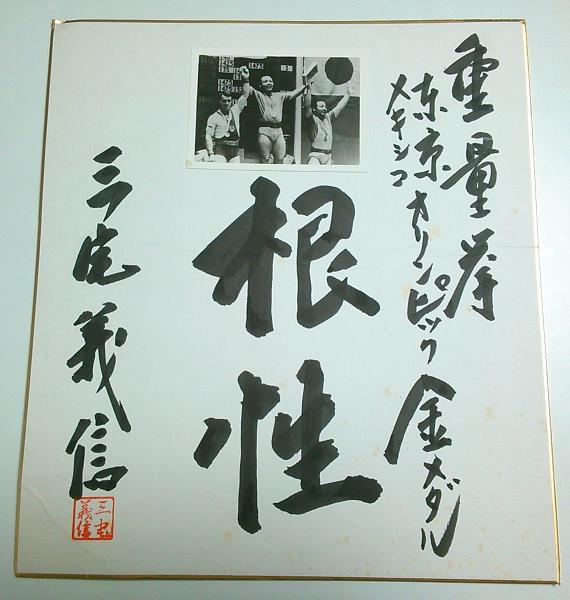 重量挙
東京オリンピック金メダル
メキシコ
根性
三宅義信
三宅
義信